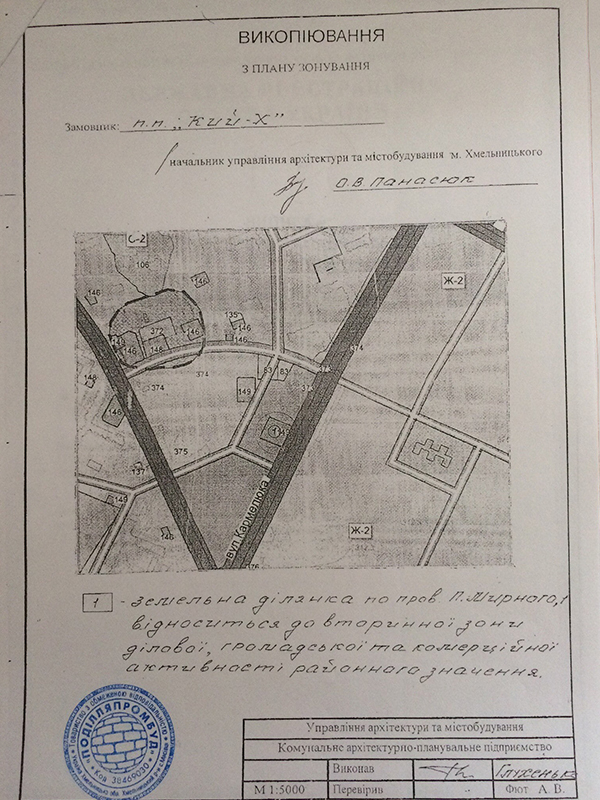 ВИКОПІЮВАННЯ
З ПЛАНУ ЗОНУВАННЯ
Замовник: п.п. „Кий-Х"
начальник управління архітектури та містобудування м. Хмельницького
О.В. Панасюк
С-2
106
146
146
Ж-2
135
146
372
146
146
146
146
374
374
374
373
373
83
83
148
149
146
149
375
137
149
146
вул.Кармелюка
Ж-2
176
1 - земельна ділянка по пров. П.Мирного, 1
відноситься до вторинної зони
ділової, громадської та комерційної
активності районного значення.
Товариство з обмеженою відповідальністю
ПОДІЛЛЯПРОМБУД
Код 38469030
Управління архітектури та містобудування
Комунальне архітектурно-планувальне підприємство
Виконав
М 1:5000 Перевірив Фют А. В.